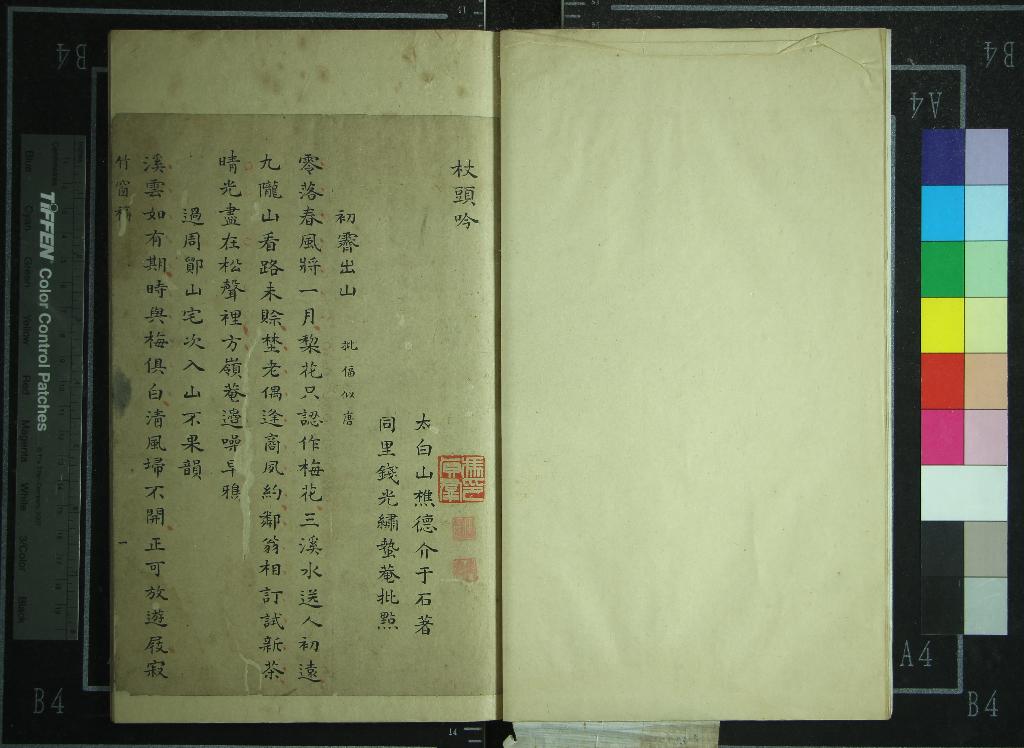 杖頭吟
太白山樵德介于石著
同里錢光繡蟄菴批點
初霽出山 批 偪似唐
零落春風將一月梨花只認作梅花三溪水送人初遠
九隴山看路未賒埜老偶逢商夙約鄰翁相訂試新茶
晴光盡在松聲裡方嶺菴邊噪早鴉
過周鄮山宅次入山不果韻
溪雲如有期時與梅俱白清風埽不開正可放遊屐寂
竹窗稿 一
TIFFEN Color Control Patches
Blue Cyan Green Yellow Red Magenta White 3/Color Black
B4
B4
A4
A4
B4
B4
14